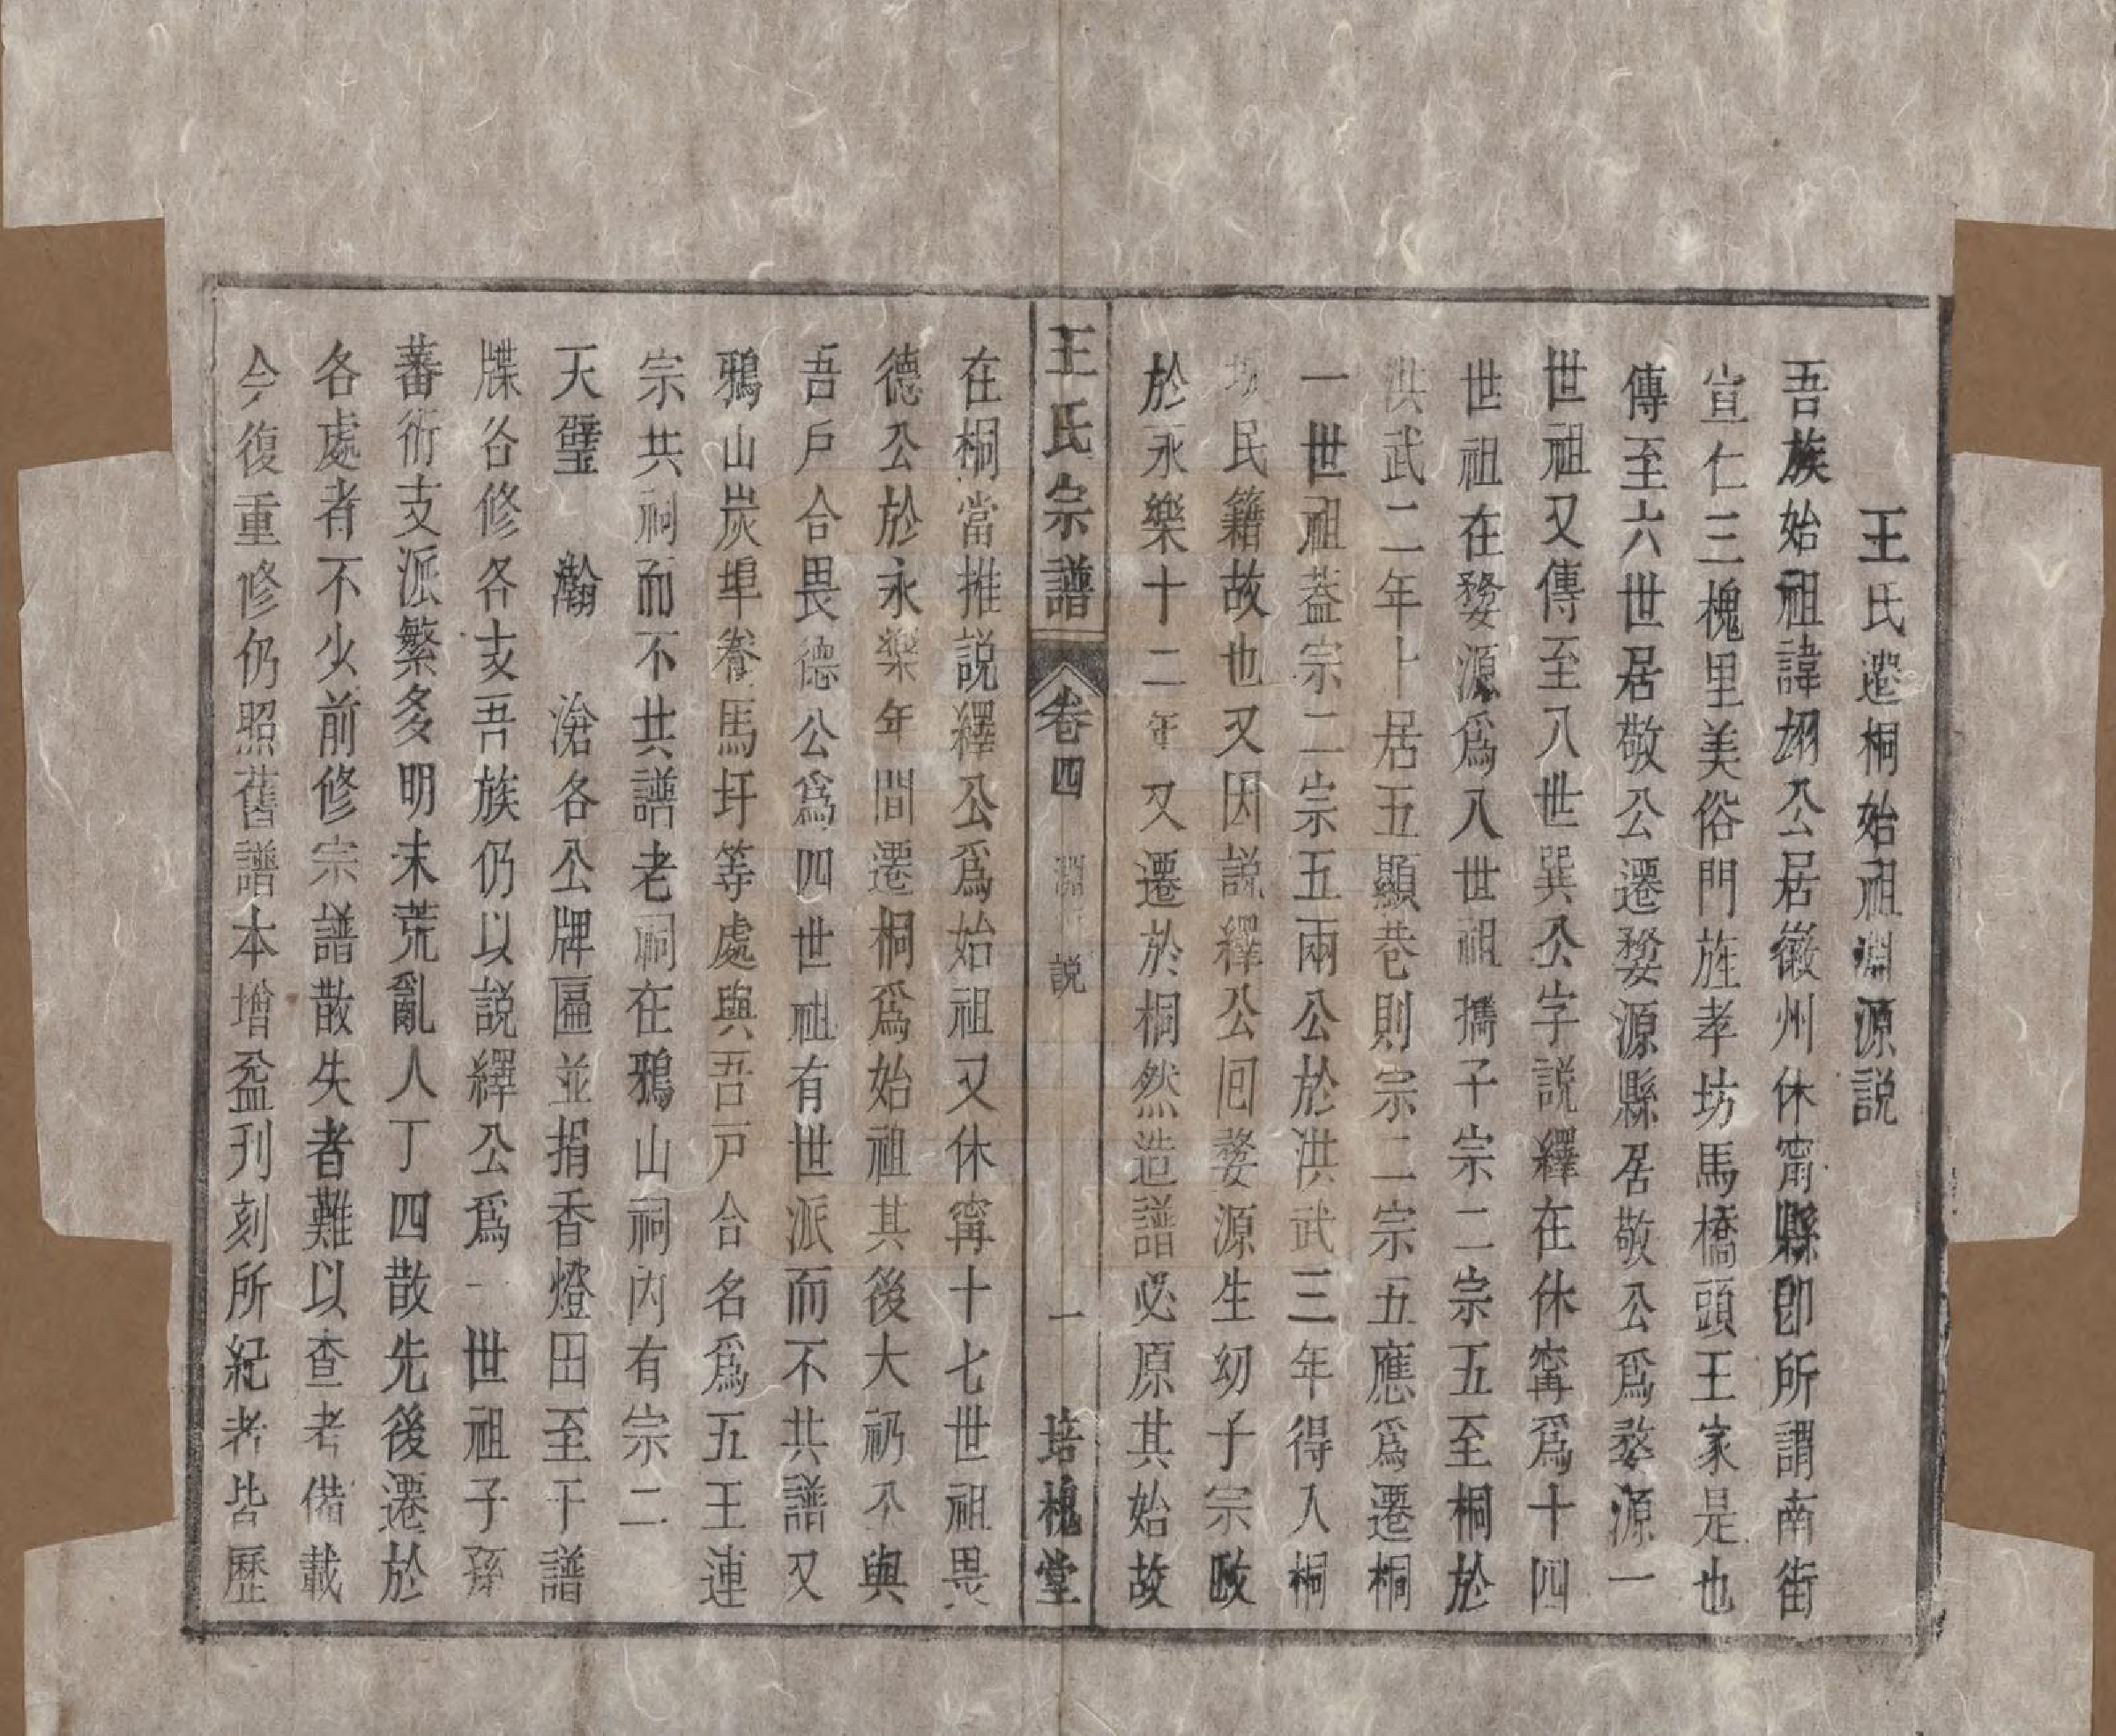 王氏遷桐始祖淵源説
吾族始祖諱翊公居徽州休甯縣即所謂南街
宣仁三槐里美俗門旌孝坊馬橋頭王家是也
傳至六世居敬公遷婺源縣居敬公爲婺源一
世祖又傳至八世巽公字説繹在休甯爲十四
世祖在婺源爲八世祖攜子宗二宗五至桐於
洪武二年卜居五顯巷則宗二宗五應爲遷桐
一世祖葢宗二宗五兩公於洪武三年得入桐
坂民籍故也又因説繹公囘婺源生幼子宗畋
於永樂十二年又遷於桐然造譜必原其始故
王氏宗譜
卷四
淵源説
一
培槐堂
在桐當推説繹公爲始祖又休甯十七世祖畏
德公於永樂年間遷桐爲始祖其後大礽不與
吾戶合畏德公爲四世祖有世派而不共譜又
鴉山炭埠養馬圩等處與吾戸合名爲五王連
宗共祠而不共譜老祠在鴉山祠内有宗二
天璧 瀚 滄各公牌匾並捐香燈田至于譜
牒各修各支吾族仍以説繹公爲一世祖子孫
蕃衍支派繁多明末荒亂人丁四散先後遷於
各處者不少前修宗譜散失者難以查考備載
今復重修仍照舊譜本增益刊刻所紀者皆歷